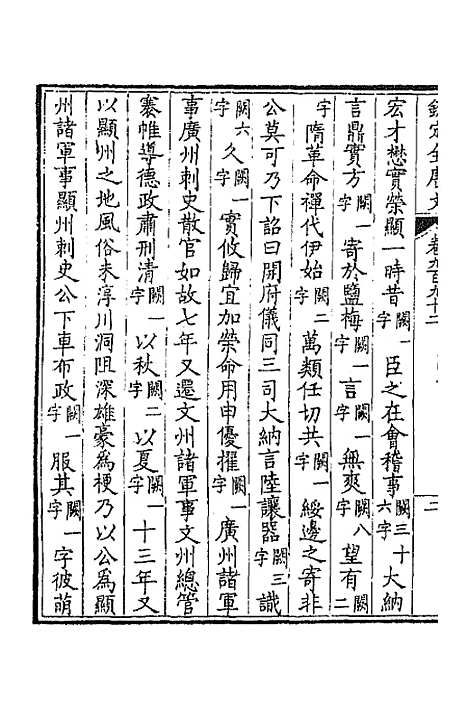 欽定全唐文 卷九百九十二 二
宏才懋實榮顯一時昔闕一字臣之在會稽事闕三十六字大納
言鼎實方闕一字寄於鹽梅闕一字言闕一字無爽闕八字望有闕二
字隋革命禪代伊始闕二字萬類任切共闕一字綏邊之寄非
公莫可乃下詔曰開府儀同三司大納言陸讓器闕三字識
闕六字久闕一字實攸歸宜加榮命用申優擢闕一字廣州諸軍
事廣州刺史散官如故七年又遷文州諸軍事文州總管
褰帷導德政肅刑清闕一字以秋闕二字以夏闕一字十三年又
以顯州之地風俗未淳川洞阻深雄豪為梗乃以公為顯
州諸軍事顯州刺史公下車布政闕一字服其闕一字字彼萌